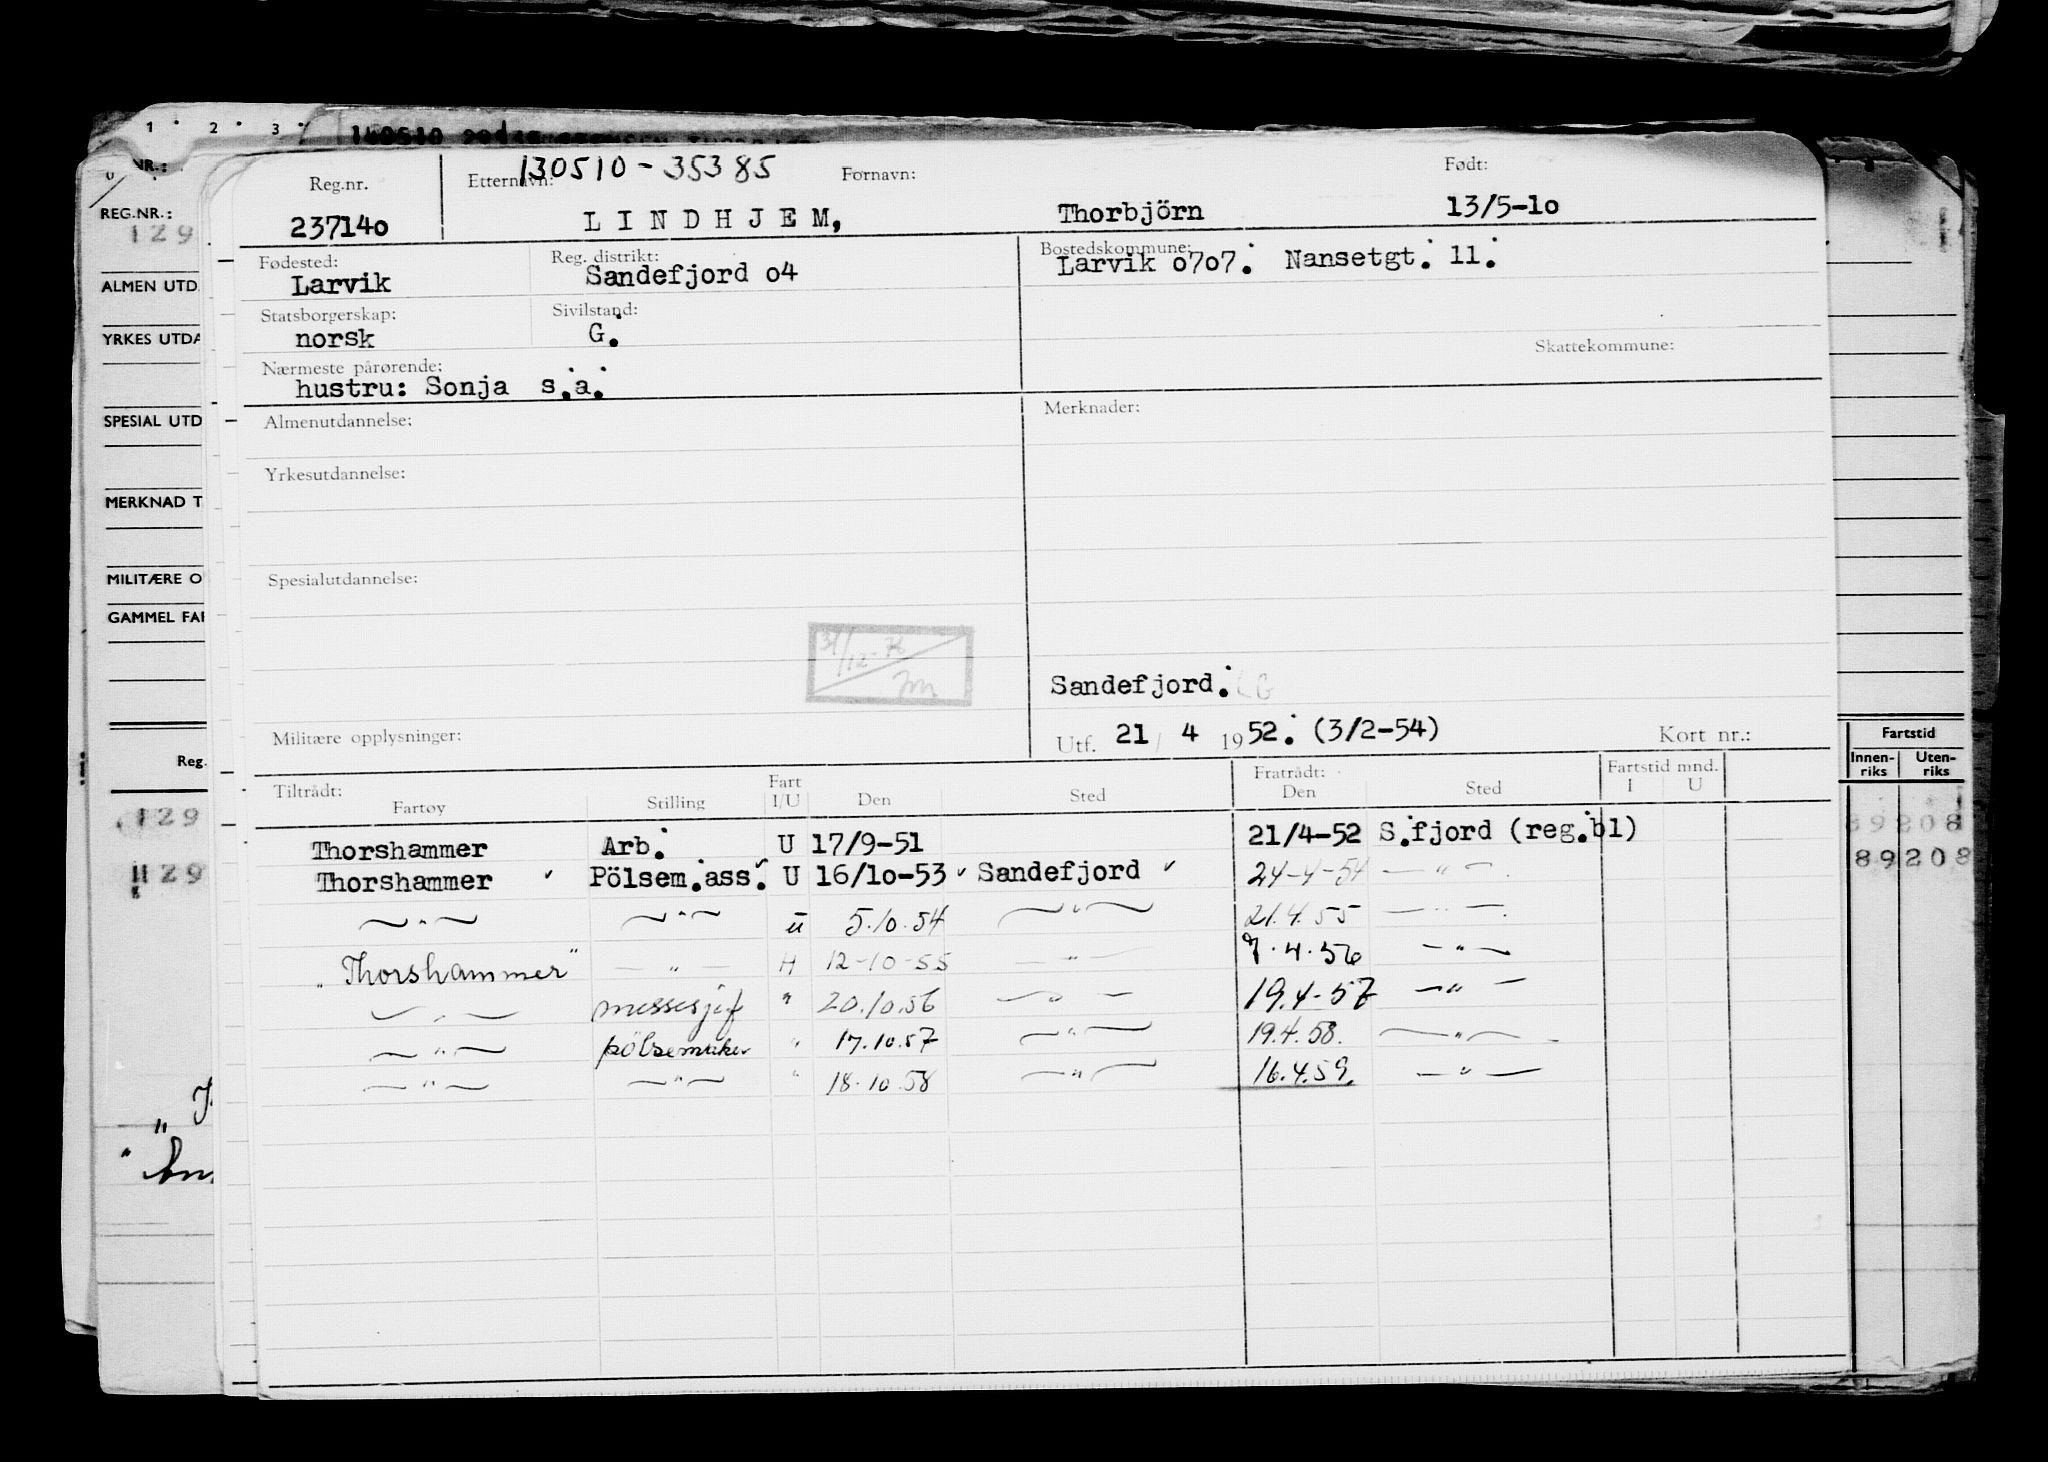 1 2 3
NR.:
REG.NR.:
129
ALMEN UTD
YRKES UTDA
SPESIAL UTD
MERKNAD T
MILITÆRE O
GAMMEL FAR
Reg.
129
129
Reg.nr. Etternavn: 130510-35385 Fornavn: Født:
23714o LINDHJEM, Thorbjörn 13/5-1o
Fødested: Reg. distrikt: Bostedskommune:
Larvik Sandefjord o4 Larvik o7o7. Nansetgt. 11.
Statsborgerskap: Sivilstand:
norsk G.
Skattekommune:
Nærmeste pårørende:
hustru: Sonja s.a.
Almenutdannelse: Merknader:
Yrkesutdannelse:
Spesialutdannelse:
31/12-76
Sandefjord.
Militære opplysninger: Utf. 21/ 4 1952. (3/2-54) Kort nr.:
Tiltrådt: Fart Fratrådt: Fartstid mnd.
Fartøy Stilling I/U Den Sted Den Sted I U
Thorshammer Arb. U 17/9-51 21/4-52 S.fjord (reg.bl)
Thorshammer Pölsem.ass. U 16/1o-53 Sandefjord 24-4-54 —"—
—"— —"— u 5.10.54 —"— 21.4.55 —"—
"Thorshammer" —"— H 12-10-55 —"— 7.4.56 —"—
—"— messesjef " 20.10.56 —"— 19.4-57 —"—
—"— pölsemaker " 17.10.57 —"— 19.4.58. —"—
—"— —"— " 18.10.58 —"— 16.4.59. —"—
Fartstid
Innen-riks Uten-riks
89 208
89 208